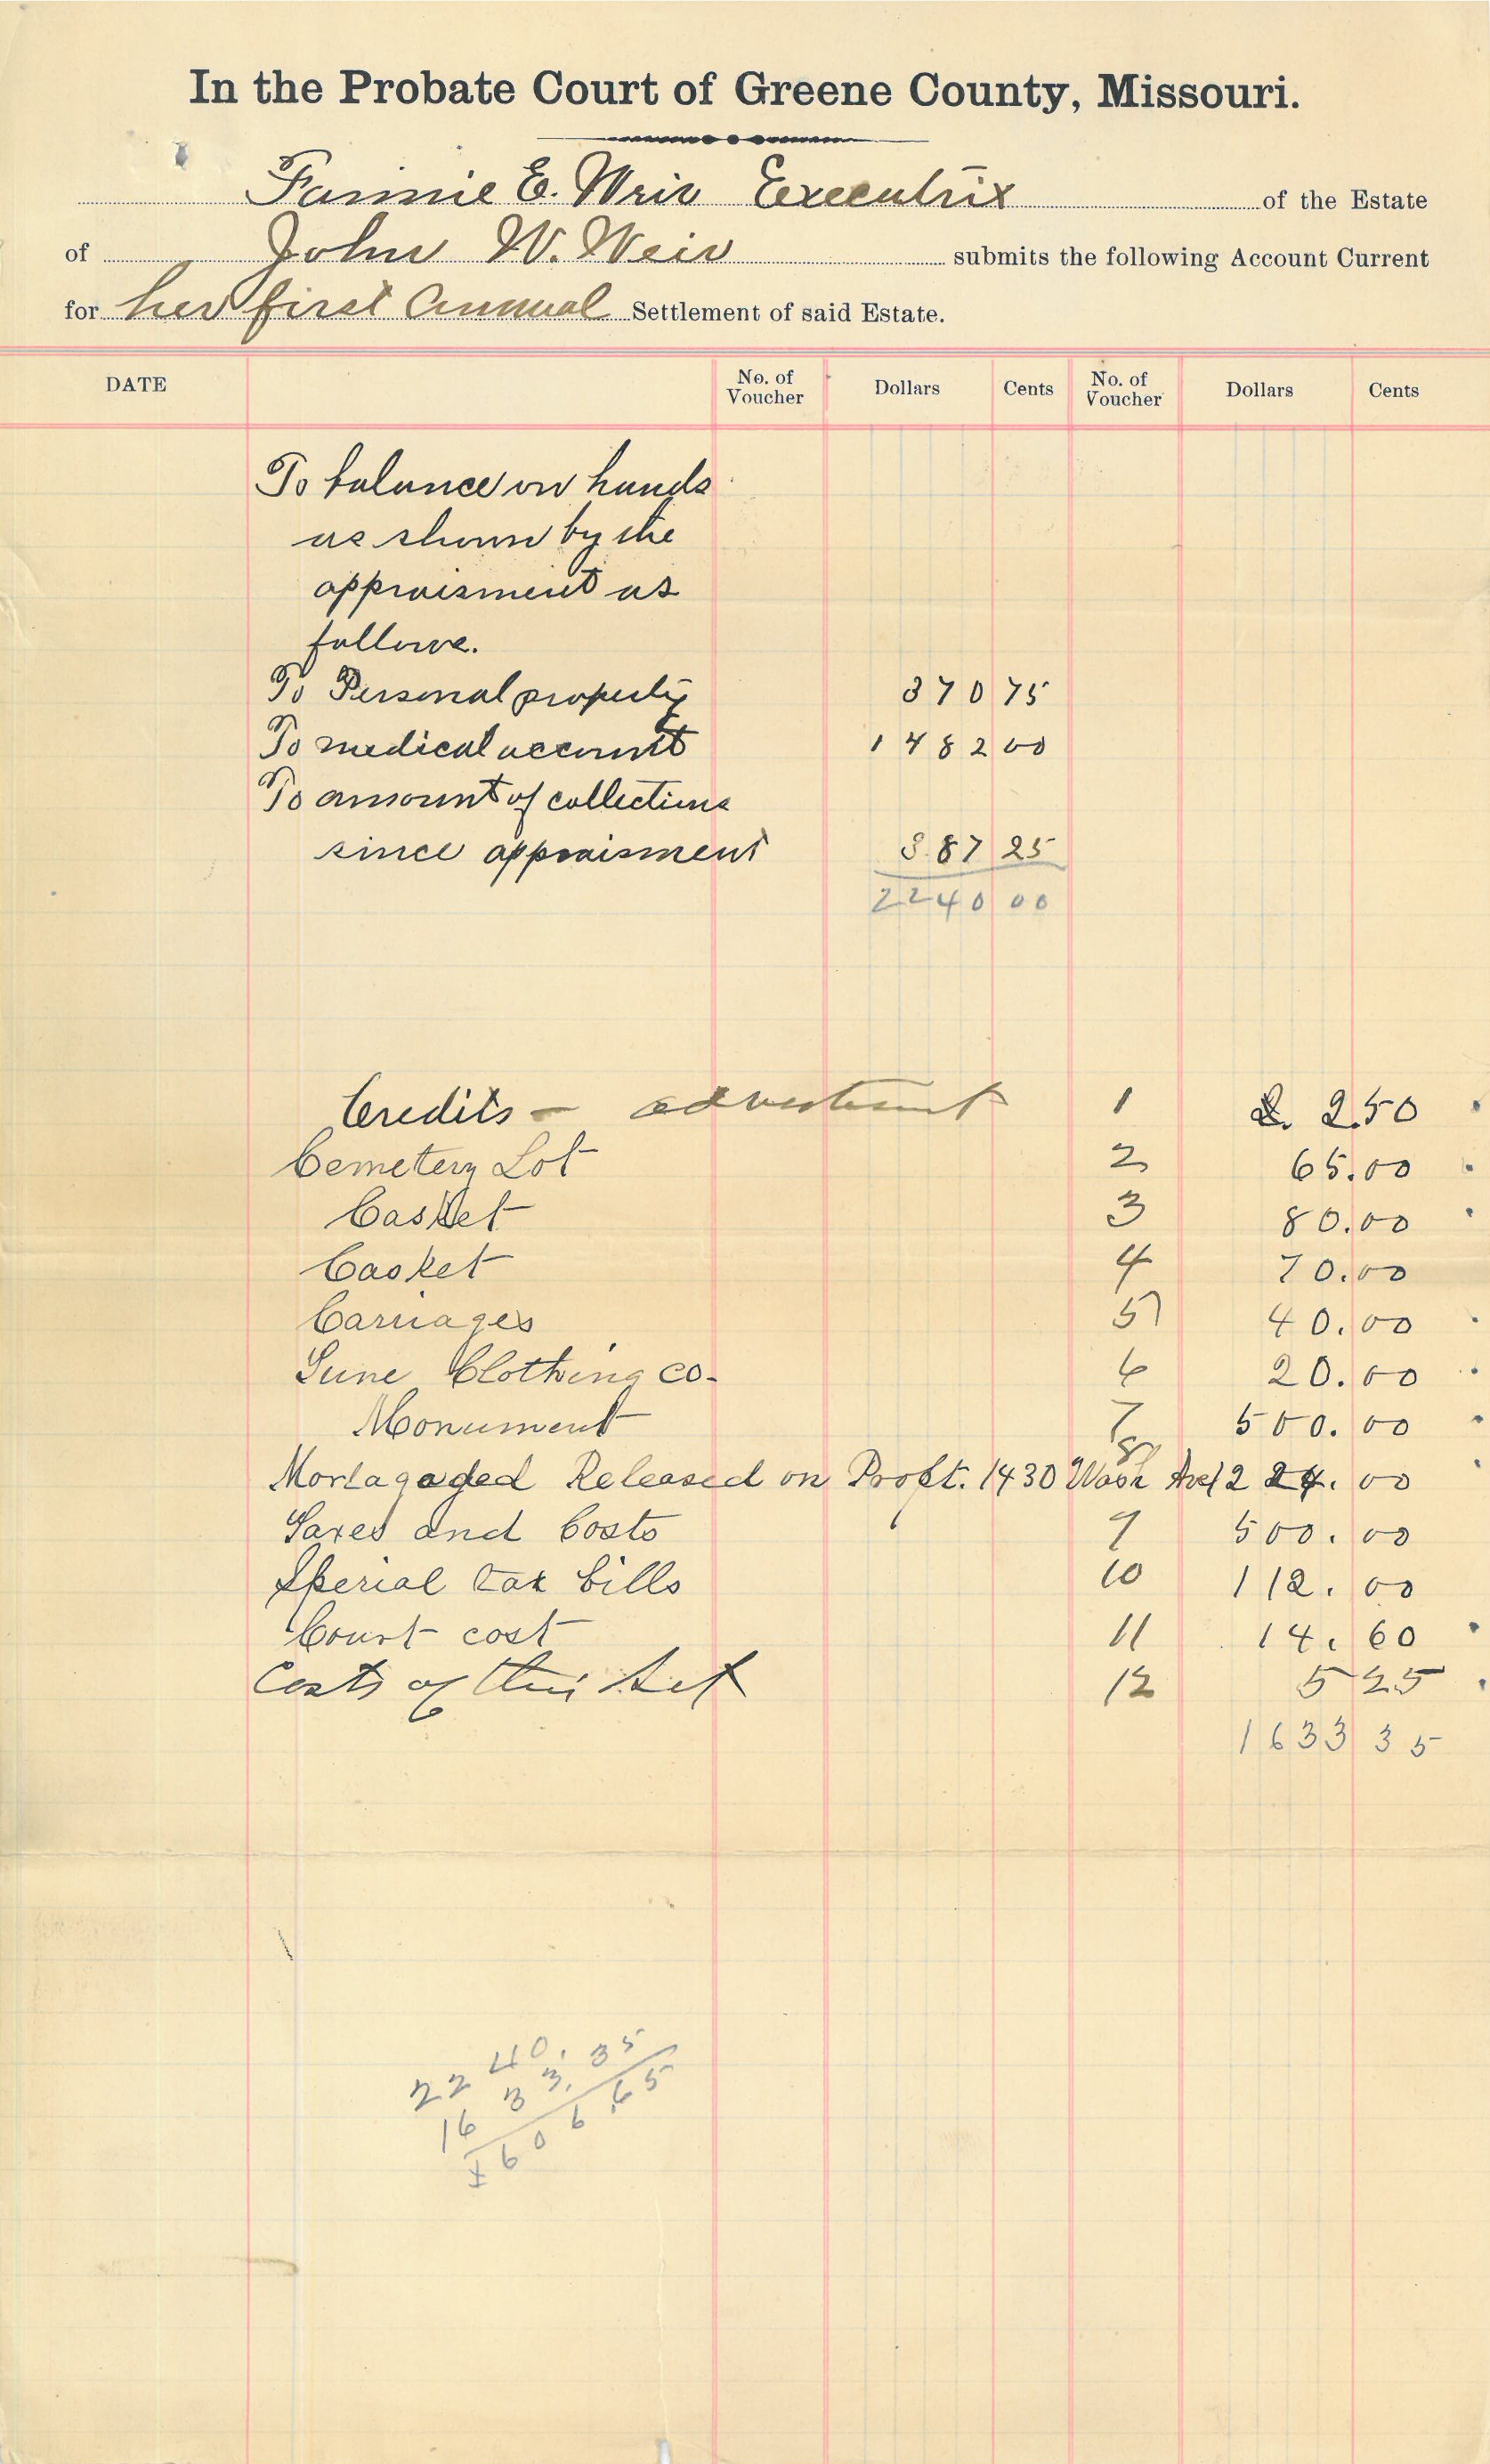 In the Probate Court of Greene County, Missouri.
Fannie E. Weir Executrix of the Estate
of John W. Weir submits the following Account Current
for her first Annual Settlement of said Estate.
DATE No. of Voucher Dollars Cents No. of Voucher Dollars Cents
To balance on hands
as shown by the
appraisment as
follows.
To Personal property 370 75
To medical account 1482 00
To amount of collections
since appraisment 387 25
2240 00
Credits - 1 2.50
Cemetery Lot 2 65.00
Casket 3 80.00
Casket 4 70.00
Carriages 5 40.00
Clothing Co. 6 20.00
Monument 7 500.00
Mortagaged Released on Propt. 1430 Wash Ave 8 224.00
Taxes and Costs 9 500.00
Special tax bills 10 112.00
Court cost 11 14.60
Costs of this Set 12 5 25
1633 35
2240.35
1633.
606.65